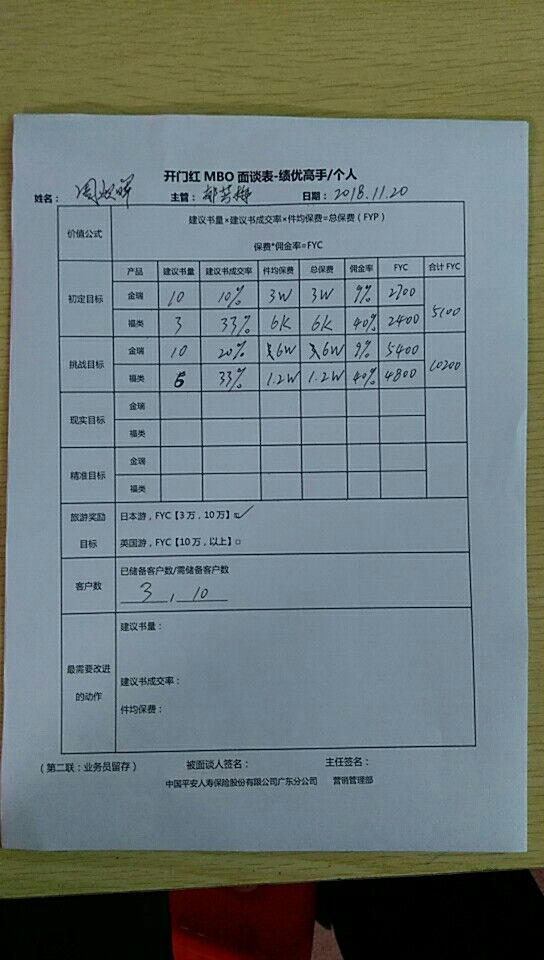 开门红 MBO 面谈表-绩优高手/个人
姓名： 主管： 日期：2018.11.20
价值公式
建议书量×建议书成交率×件均保费=总保费（FYP）
保费*佣金率=FYC
产品 建议书量 建议书成交率 件均保费 总保费 佣金率 FYC 合计 FYC
初定目标
金瑞 10 10% 3W 3W 9% 2700 5100
福类 3 33% 6K 6K 40% 2400
挑战目标
金瑞 10 20% 6W 6W 9% 5400 10200
福类 6 33% 1.2W 1.2W 40% 4800
现实目标
金瑞
福类
精准目标
金瑞
福类
旅游奖励
目标
日本游，FYC【3 万，10 万】☑
英国游，FYC【10 万，以上】□
客户数
已储备客户数/需储备客户数
3 , 10
最需要改进
的动作
建议书量：
建议书成交率：
件均保费：
（第二联：业务员留存） 被面谈人签名： 主任签名：
中国平安人寿保险股份有限公司广东分公司 营销管理部